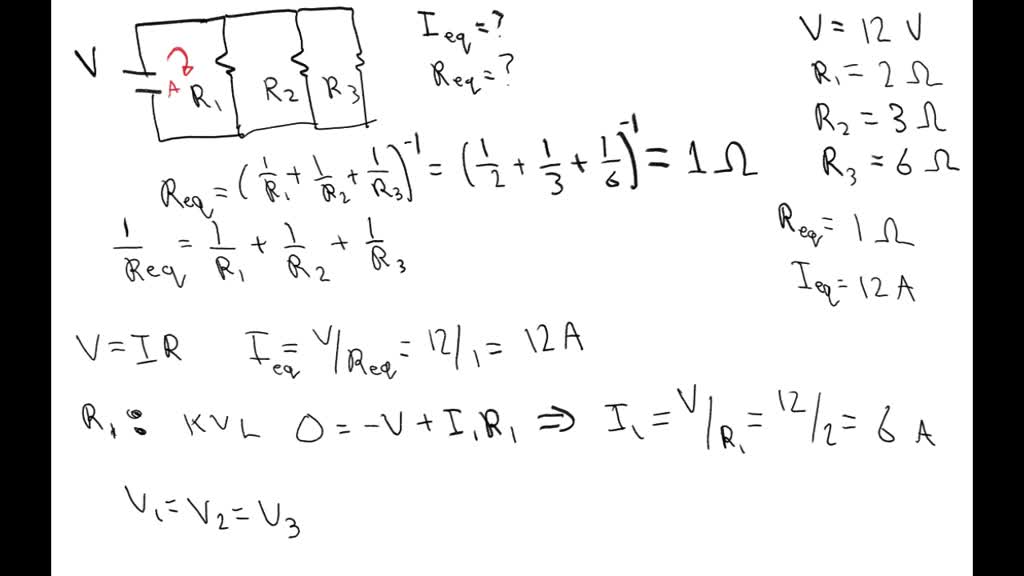 V
A
R₁ R₂ R₃
I_eq = ?
R_eq = ?
V = 12 V
R₁ = 2 Ω
R₂ = 3 Ω
R₃ = 6 Ω
R_eq = (1/R₁ + 1/R₂ + 1/R₃)⁻¹ = (1/2 + 1/3 + 1/6)⁻¹ = 1 Ω
1/Req = 1/R₁ + 1/R₂ + 1/R₃
R_eq = 1 Ω
I_eq = 12 A
V = IR I_eq = V/R_eq = 12/1 = 12 A
R₁ : KVL 0 = -V + I₁R₁ ⇒ I₁ = V/R₁ = 12/2 = 6 A
V₁ = V₂ = V₃